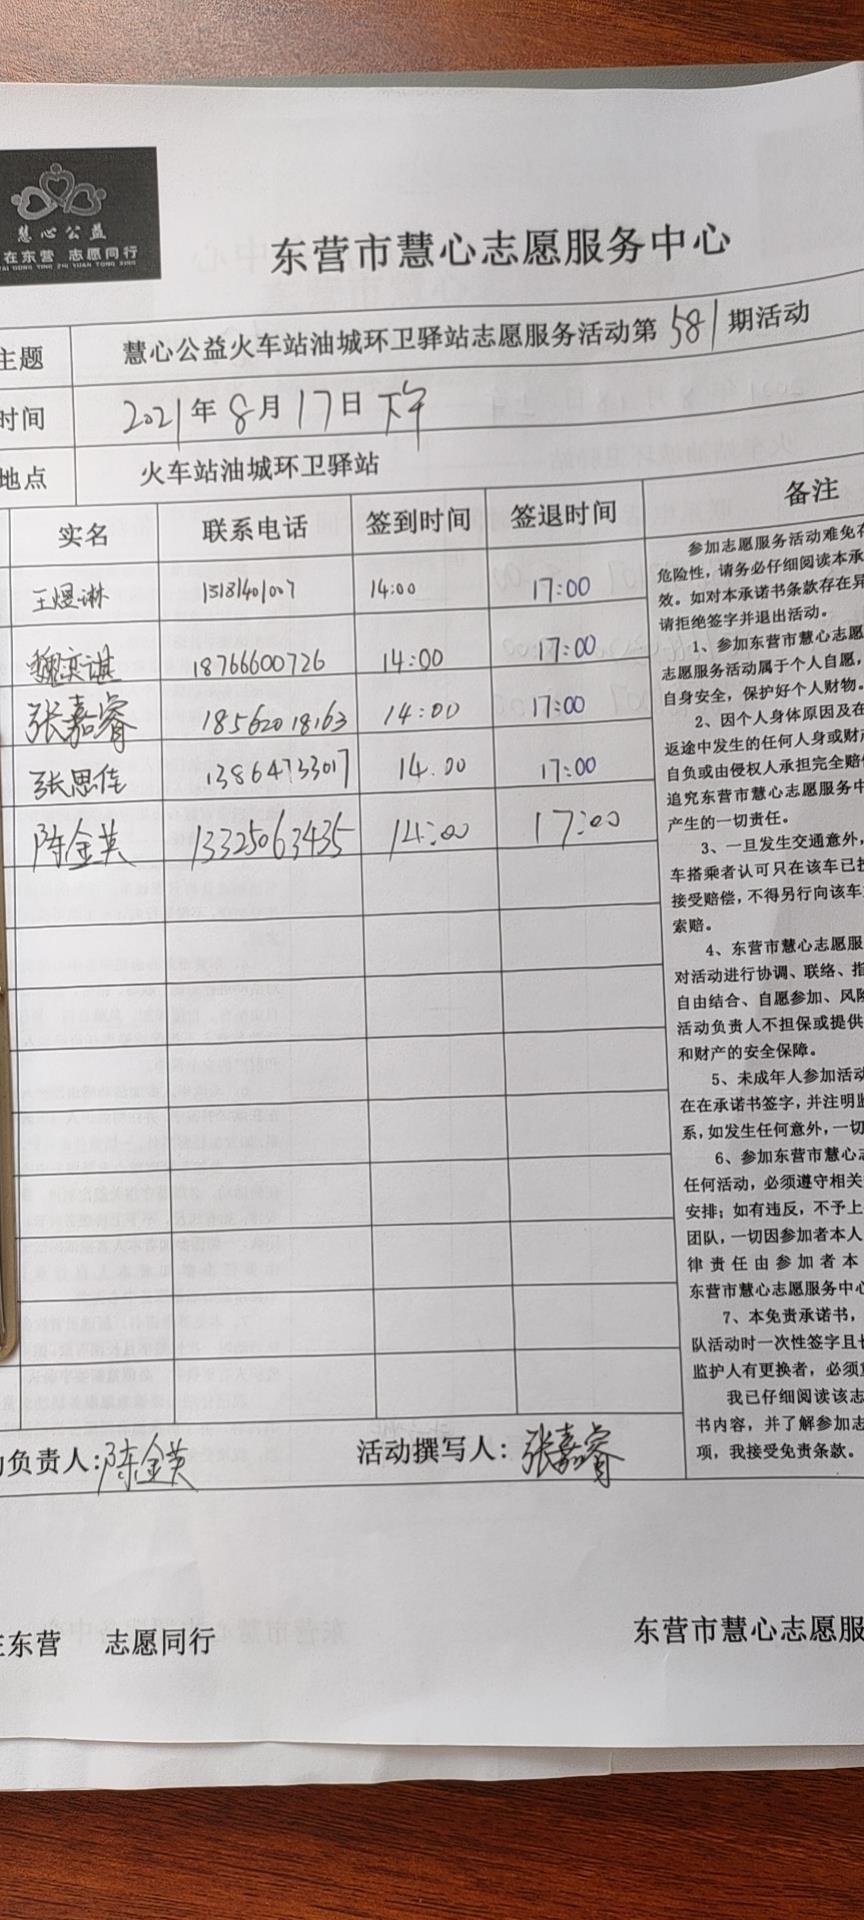 慧心公益
在东营 志愿同行
AI DONG YING ZHI YUAN TONG XING
东营市慧心志愿服务中心
主题 慧心公益火车站油城环卫驿站志愿服务活动第581期活动
时间 2021年8月17日下午
地点 火车站油城环卫驿站
实名 联系电话 签到时间 签退时间 备注
王煜琳 13181401007 14:00 17:00
魏奕谌 18766600726 14:00 17:00
张嘉睿 18562018163 14:00 17:00
张思佳 13864733017 14.00 17:00
陈金英 13325063435 14:00 17:00
参加志愿服务活动难免存
危险性，请务必仔细阅读本承
效。如对本承诺书条款存在异
请拒绝签字并退出活动。
1、参加东营市慧心志愿
志愿服务活动属于个人自愿，
自身安全，保护好个人财物。
2、因个人身体原因及在
返途中发生的任何人身或财产
自负或由侵权人承担完全赔偿
追究东营市慧心志愿服务中
产生的一切责任。
3、一旦发生交通意外，
车搭乘者认可只在该车已投
接受赔偿，不得另行向该车
索赔。
4、东营市慧心志愿服
对活动进行协调、联络、指
自由结合、自愿参加、风险
活动负责人不担保或提供
和财产的安全保障。
5、未成年人参加活动
在在承诺书签字，并注明监
系，如发生任何意外，一切
6、参加东营市慧心志
任何活动，必须遵守相关
安排；如有违反，不予上
团队，一切因参加者本人
律责任由参加者本
东营市慧心志愿服务中心
7、本免责承诺书，
队活动时一次性签字且长
监护人有更换者，必须重
我已仔细阅读该志
书内容，并了解参加志
项，我接受免责条款。
动负责人：陈金英 活动撰写人：张嘉睿
在东营 志愿同行 东营市慧心志愿服